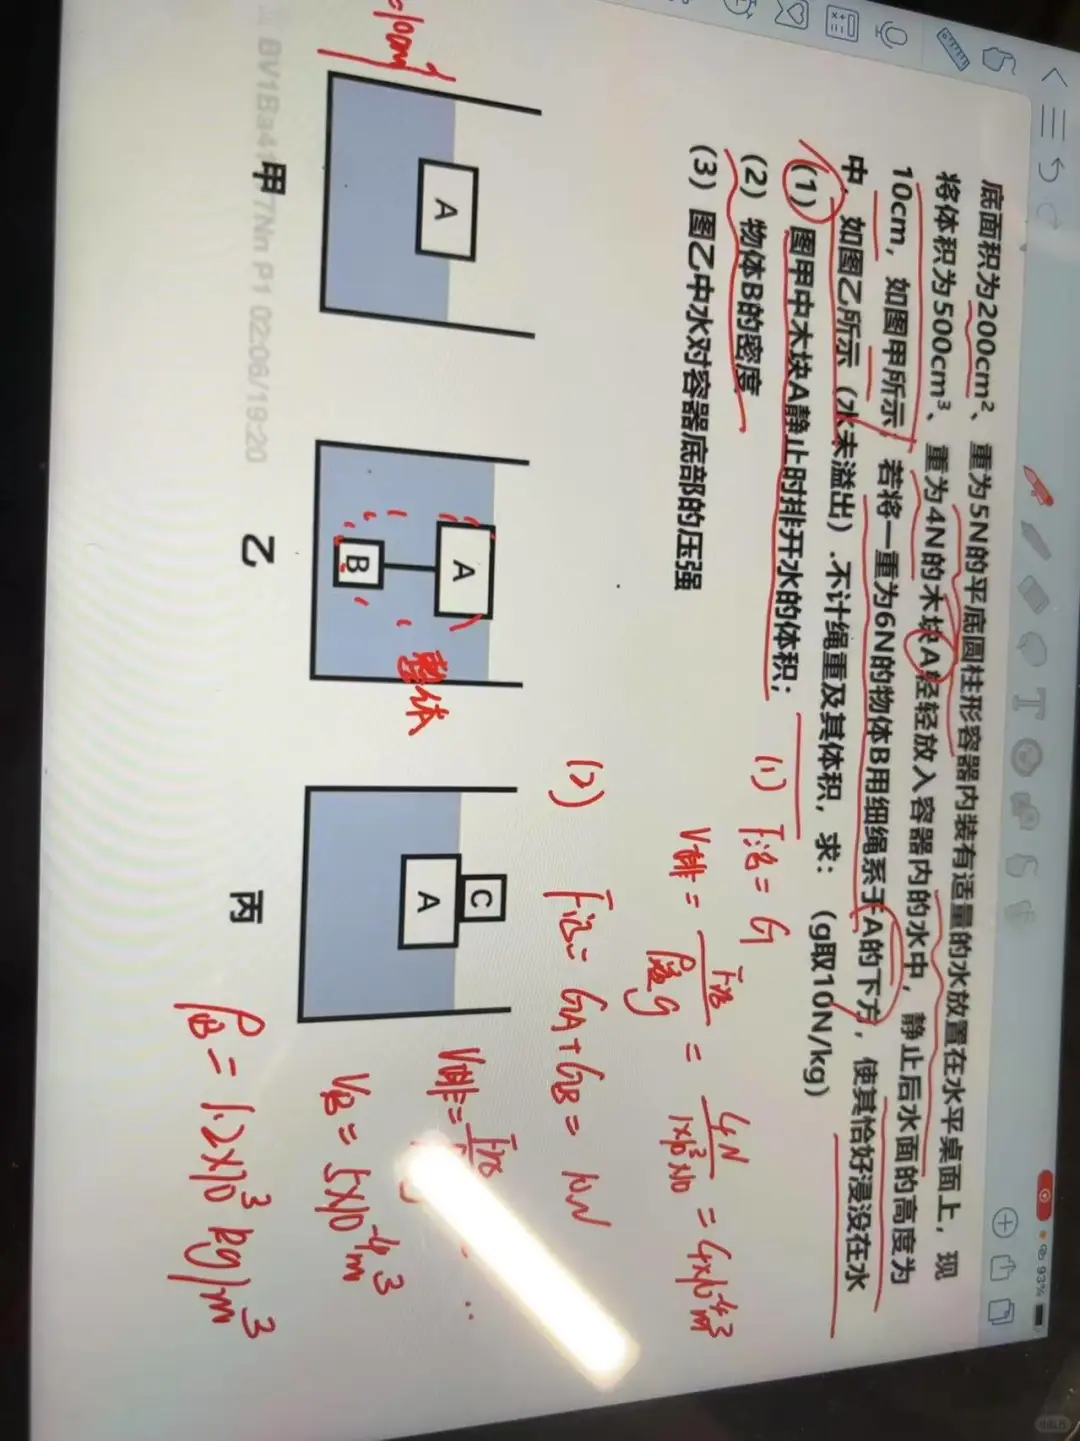 93%
底面积为200cm²、重为5N的平底圆柱形容器内装有适量的水放置在水平桌面上，现
将体积为500cm³、重为4N的木块A轻轻放入容器内的水中，静止后水面的高度为
10cm，如图甲所示，若将一重为6N的物体B用细绳系于A的下方，使其恰好浸没在水
中，如图乙所示（水未溢出）.不计绳重及其体积，求：（g取10N/kg）
（1）图甲中木块A静止时排开水的体积；
（2）物体B的密度
（3）图乙中水对容器底部的压强
(1) F浮=G
V排=F浮/ρ液g=4N/1×10³×10=4×10⁻⁴m³
(2) F浮=GA+GB=10N
V排=F浮
VB=5×10⁻⁴m³
ρB=1.2×10³kg/m³
A
A
B
整体
C
A
甲
乙
丙
P1 02:06/19:20